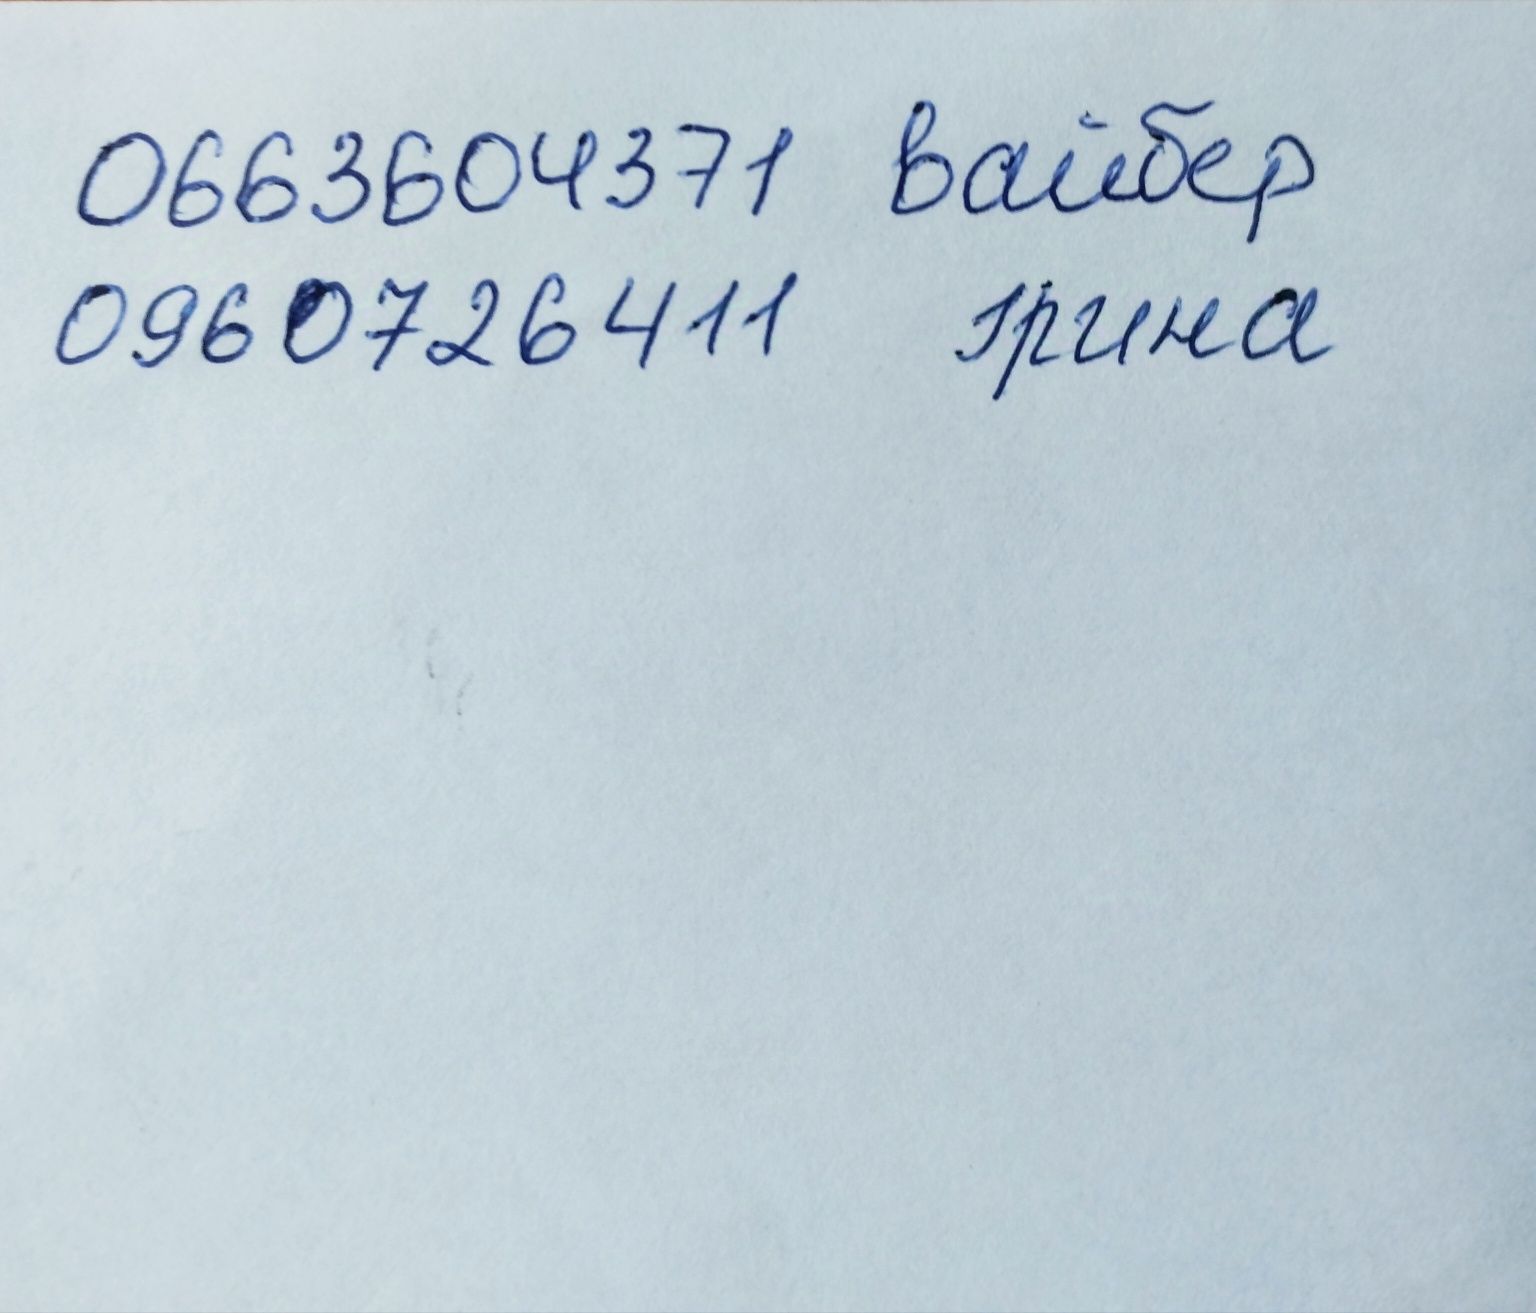 0663604371 вайбер
0960726411 Ірина